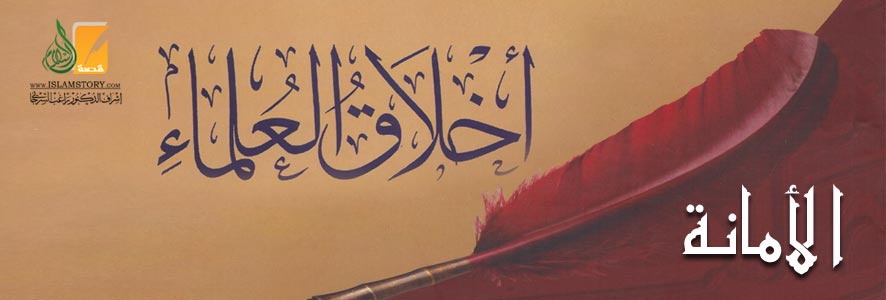 قصة الإسلام
WWW.ISLAMSTORY.COM
إشراف الدكتور راغب السرجاني
أَخْلَاقُ العُلَمَاءِ
الأمانة